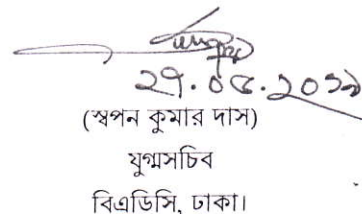 ২৭.০৫.২০১৯
(স্বপন কুমার দাস)
যুগ্মসচিব
বিএডিসি, ঢাকা।